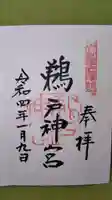 奉拝
鵜戸神宮
令和四年一月九日